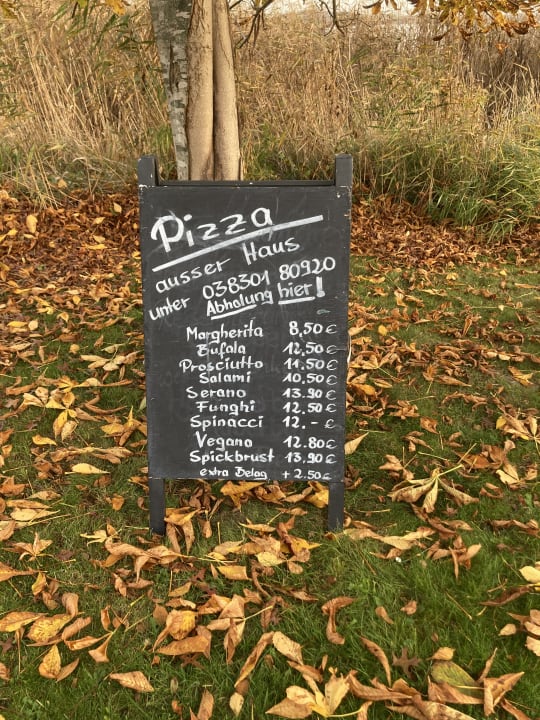 Pizza
ausser Haus
unter 038301 80920
Abholung hier!
Margherita 8,50€
Bufala 12,50€
Prosciutto 11.50€
Salami 10,50€
Serano 13.90€
Funghi 12.50€
Spinacci 12.-€
Vegano 12.80€
Spickbrust 13.90€
extra Belag +2.50€